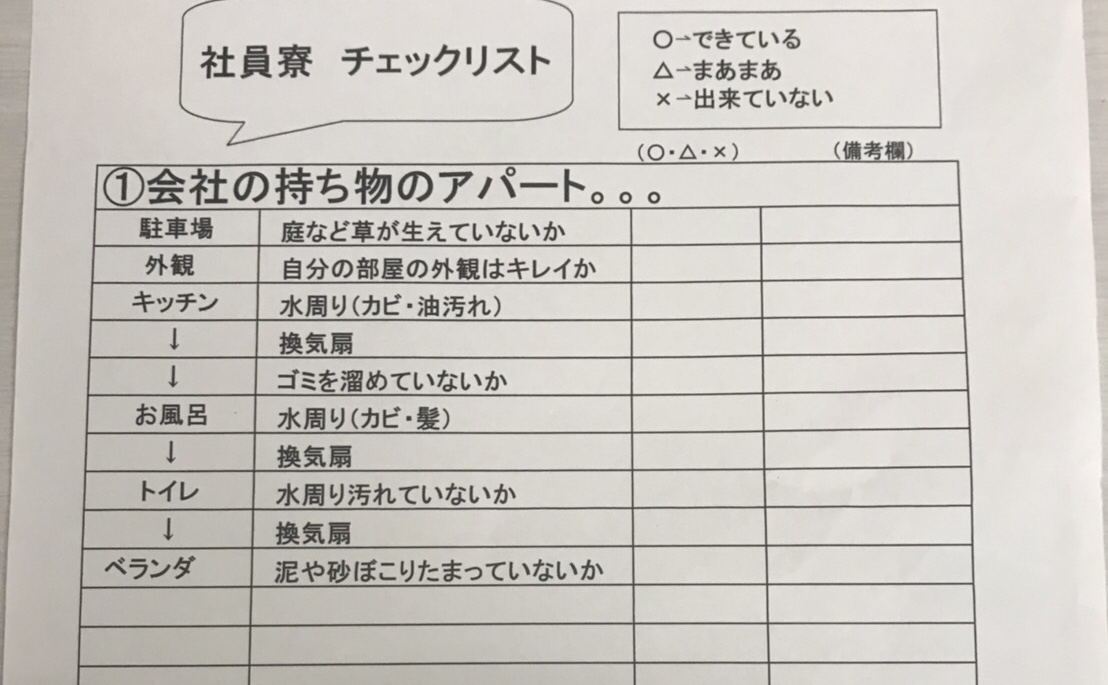 社員寮 チェックリスト
〇→できている
△→まあまあ
×→出来ていない
（〇・△・×） （備考欄）
①会社の持ち物のアパート。。。
駐車場 庭など草が生えていないか
外観 自分の部屋の外観はキレイか
キッチン 水周り（カビ・油汚れ）
↓ 換気扇
↓ ゴミを溜めていないか
お風呂 水周り（カビ・髪）
↓ 換気扇
トイレ 水周り汚れていないか
↓ 換気扇
ベランダ 泥や砂ぼこりたまっていないか